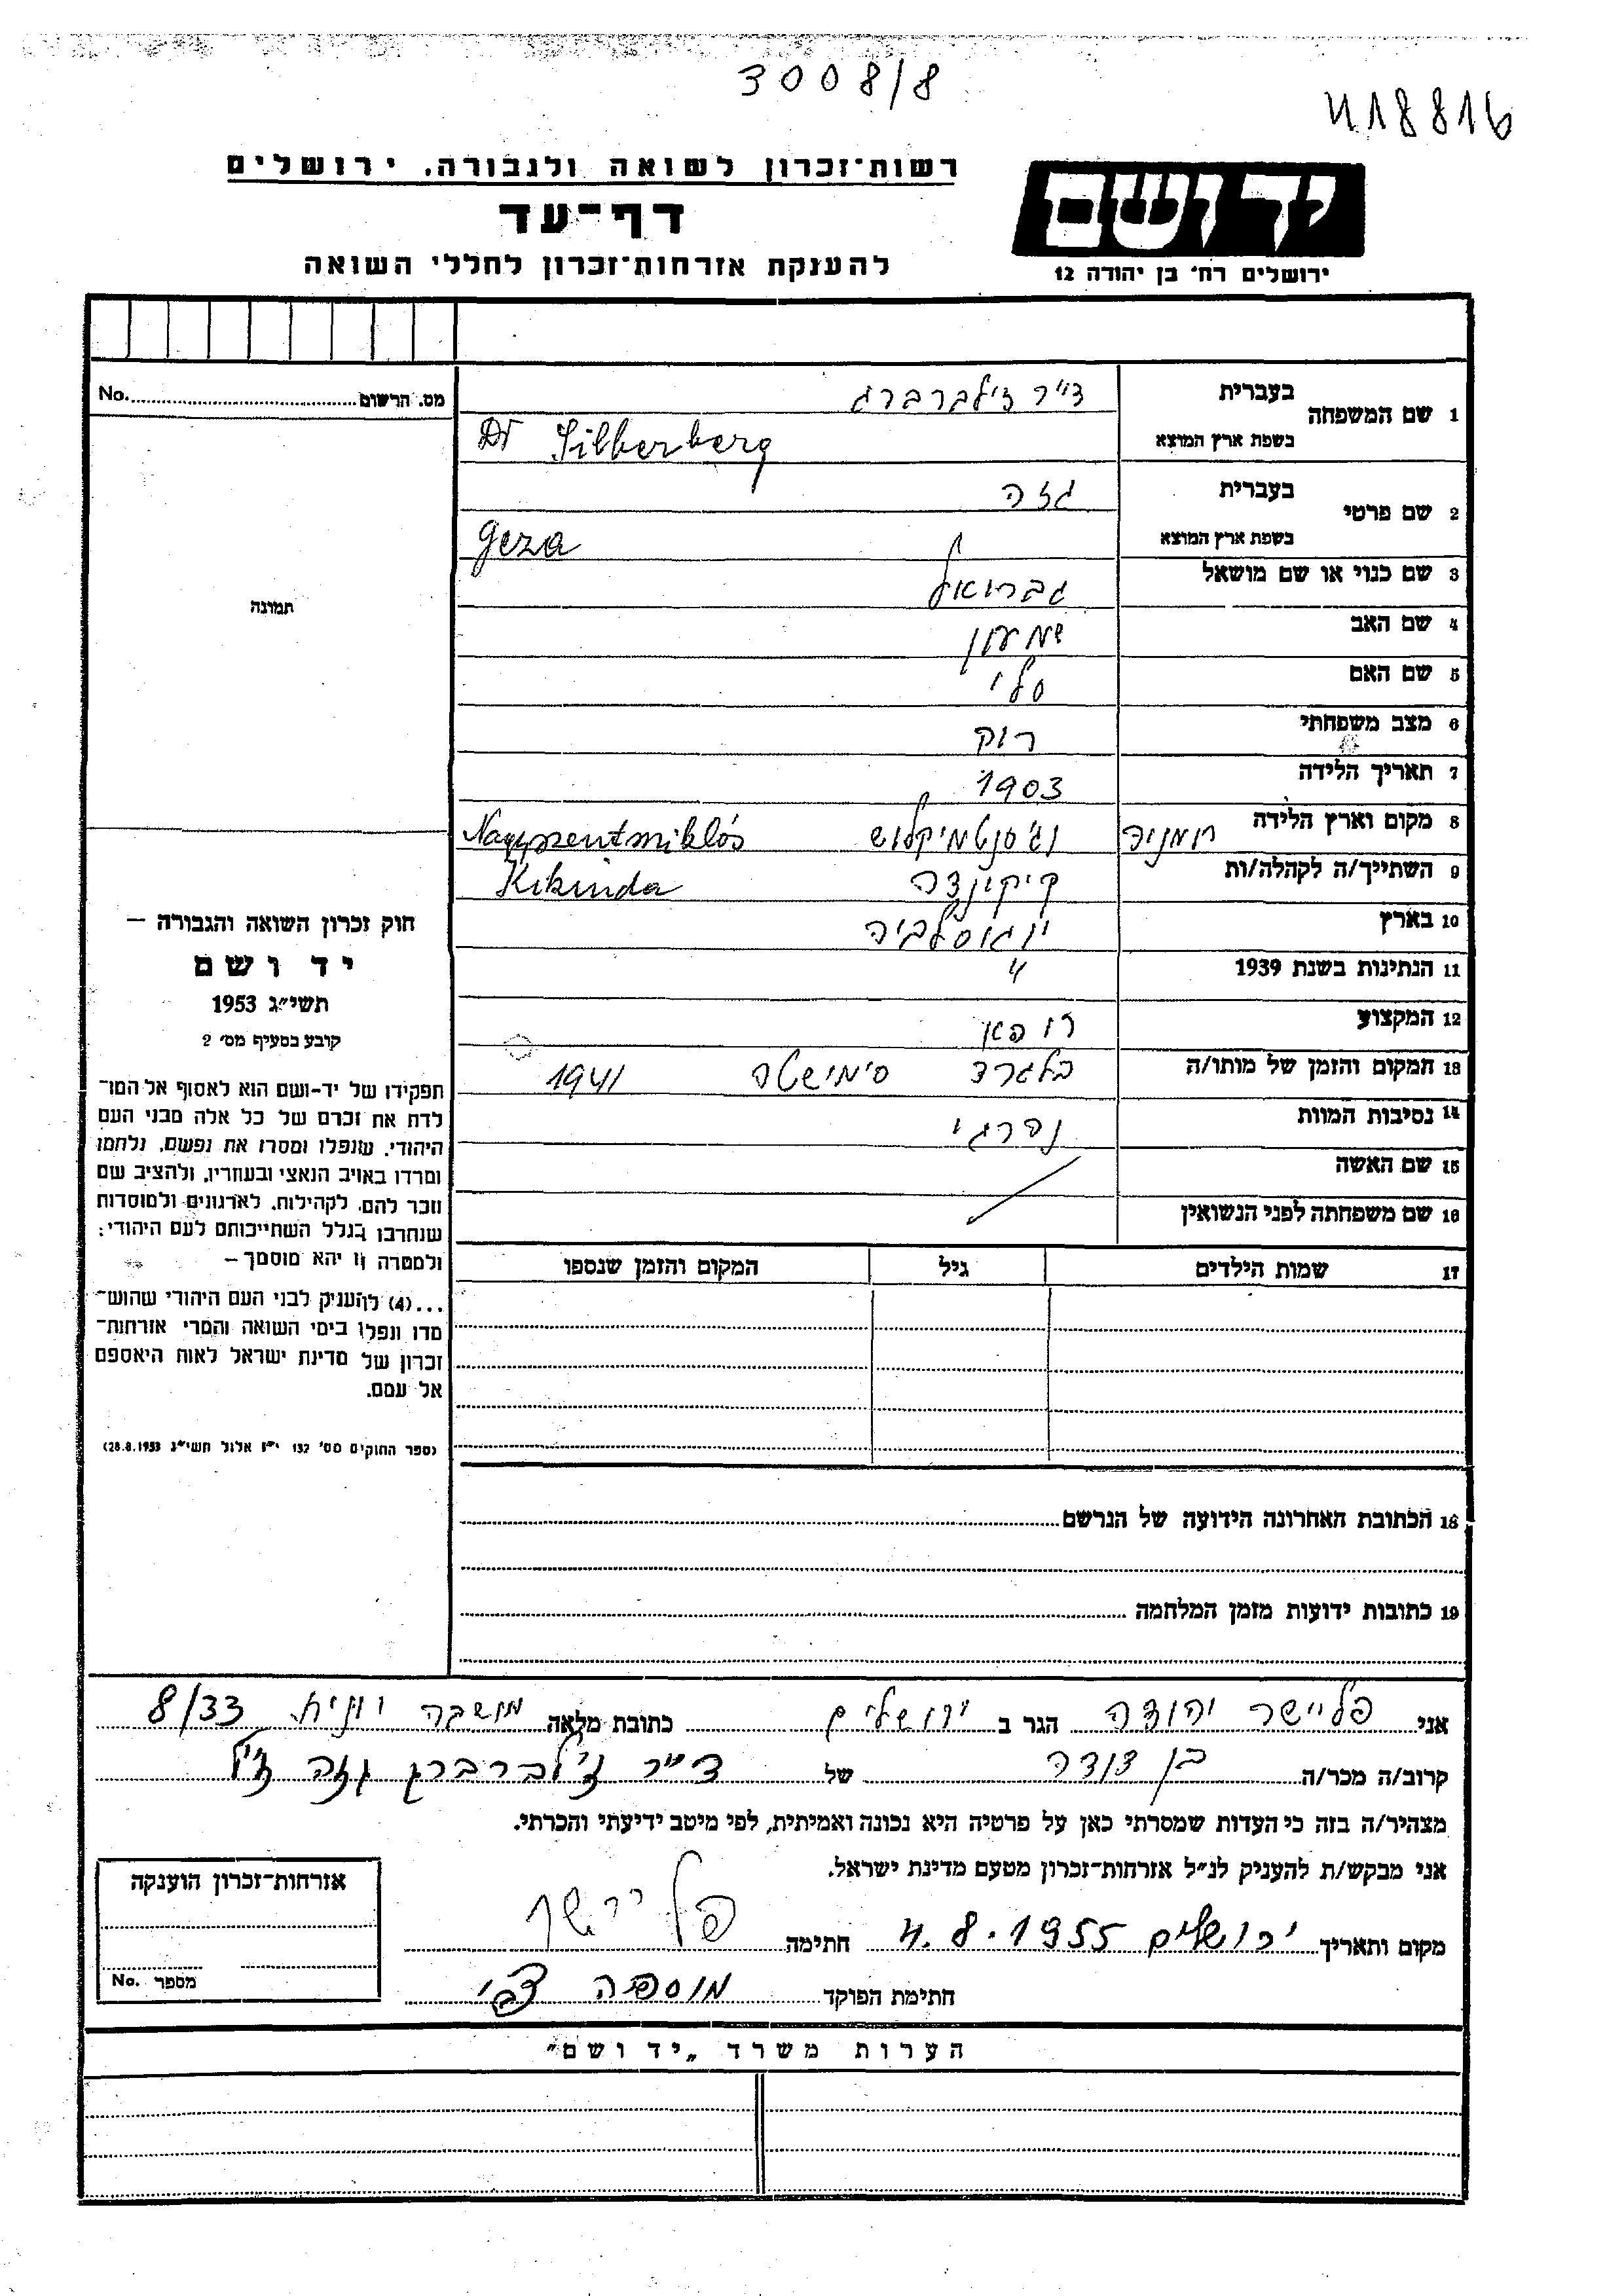 3008/8
418816
רשות־זכרון לשואה ולגבורה, ירושלים
דף־עד
להענקת אזרחות־זכרון לחללי השואה
יד ושם
ירושלים רח' בן יהודה 12
מס. הרשום No.
תמונה
חוק זכרון השואה והגבורה –
יד ושם
תשי"ג 1953
קובע בסעיף מס' 2
תפקידו של יד-ושם הוא לאסוף אל המו־
לדת את זכרם של כל אלה מבני העם
היהודי, שנפלו ומסרו את נפשם, נלחמו
ומרדו באויב הנאצי ובעוזריו, ולהציב שם
וזכר להם, לקהילות, לארגונים ולמוסדות
שנחרבו בגלל השתייכותם לעם היהודי;
ולמטרה זו יהא מוסמך –
...(4) להעניק לבני העם היהודי שהוש־
מדו ונפלו בימי השואה והמרי אזרחות־
זכרון של מדינת ישראל לאות היאספם
אל עמם.
(ספר החוקים מס' 132 י"ז אלול תשי"ג 28.8.1953)
1 שם המשפחה בעברית ד"ר זילברברג
בשפת ארץ המוצא Dr Silberberg
2 שם פרטי בעברית גזה
בשפת ארץ המוצא Geza
3 שם כנוי או שם מושאל גבריאל
4 שם האב שמעון
5 שם האם סלי
6 מצב משפחתי רוק
7 תאריך הלידה 1903
8 מקום וארץ הלידה רומניה נג'סנטמיקלוש Nagyszentmiklós
9 השתייך/ה לקהלה/ות קיקינדה Kikinda
10 בארץ יוגוסלביה
11 הנתינות בשנת 1939 "
12 המקצוע רופא
13 המקום והזמן של מותו/ה בלגרד סימישטה 1941
14 נסיבות המוות נהרג
15 שם האשה
16 שם משפחתה לפני הנשואין
17 שמות הילדים גיל המקום והזמן שנספו
18 הכתובת האחרונה הידועה של הנרשם
19 כתובות ידועות מזמן המלחמה
אני פליישר יהודה הגר ב ירושלים כתובת מלאה מושבה יוונית 8/33
קרוב/ה מכר/ה בן דודה של ד"ר זילברברג גזה ז"ל
מצהיר/ה בזה כי העדות שמסרתי כאן על פרטיה היא נכונה ואמיתית, לפי מיטב ידיעתי והכרתי.
אני מבקש/ת להעניק לנ"ל אזרחות-זכרון מטעם מדינת ישראל.
מקום ותאריך ירושלים 4.8.1955 חתימה פליישר
חתימת הפוקד מוספיה צבי
אזרחות־זכרון הוענקה
מספר No.
הערות משרד „יד ושם"